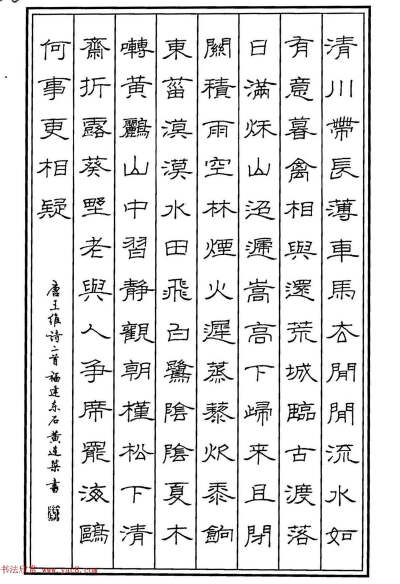 清川帶長薄車馬去閒閒流水如
有意暮禽相與還荒城臨古渡落
日滿秋山迢遞嵩高下歸來且閉
關積雨空林煙火遲蒸藜炊黍餉
東菑漠漠水田飛白鷺陰陰夏木
囀黃鸝山中習靜觀朝槿松下清
齋折露葵野老與人爭席罷海鷗
何事更相疑
唐王維诗二首福建东石黄書
书法欣赏